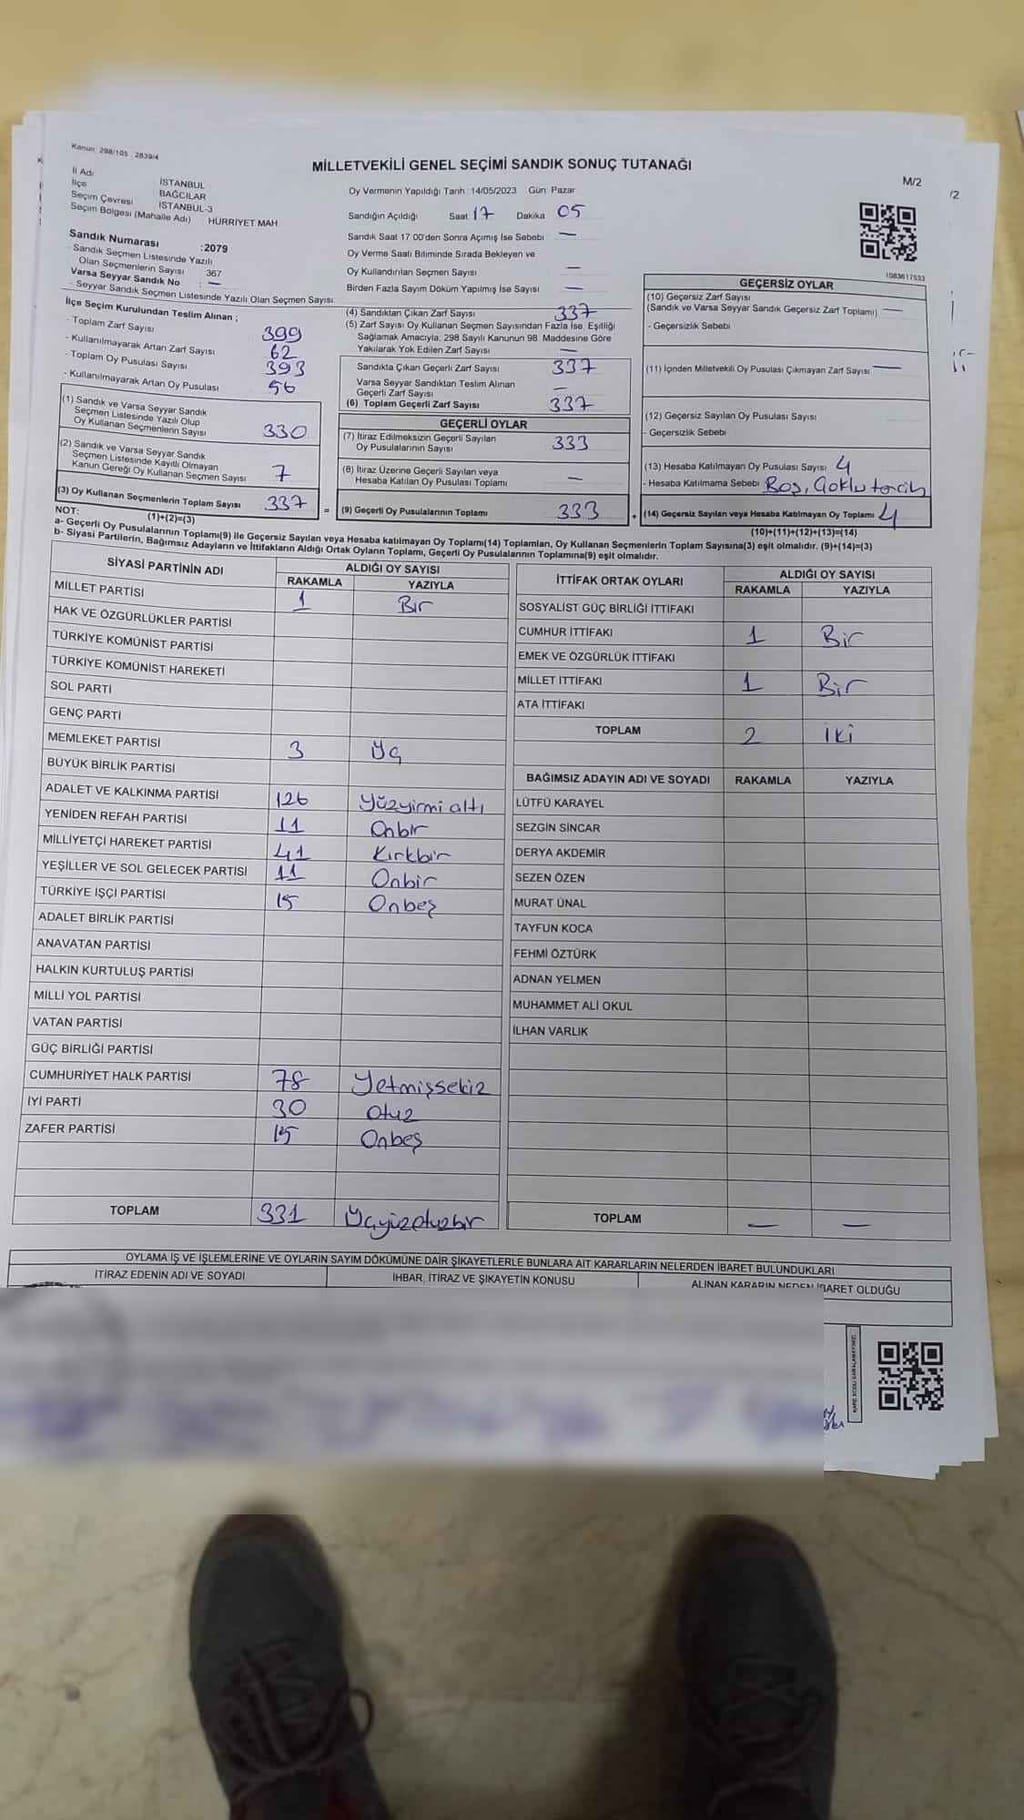 Kanun: 298/105 , 2839/4
MİLLETVEKİLİ GENEL SEÇİMİ SANDIK SONUÇ TUTANAĞI
M/2
/2
İl Adı İSTANBUL
İlçe BAĞCILAR
Seçim Çevresi İSTANBUL-3
Seçim Bölgesi (Mahalle Adı) HÜRRİYET MAH.
Sandık Numarası :2079
Sandık Seçmen Listesinde Yazılı
Olan Seçmenlerin Sayısı 367
Varsa Seyyar Sandık No : —
- Seyyar Sandık Seçmen Listesinde Yazılı Olan Seçmen Sayısı:
Oy Vermenin Yapıldığı Tarih :14/05/2023 Gün: Pazar
Sandığın Açıldığı Saat 17 Dakika 05
Sandık Saat 17:00'den Sonra Açımış İse Sebebi —
Oy Verme Saati Bitiminde Sırada Bekleyen ve
Oy Kullandırılan Seçmen Sayısı —
Birden Fazla Sayım Döküm Yapılmış İse Sayısı —
1083617533
İlçe Seçim Kurulundan Teslim Alınan ;
- Toplam Zarf Sayısı 399
- Kullanılmayarak Artan Zarf Sayısı 62
- Toplam Oy Pusulası Sayısı 393
- Kullanılmayarak Artan Oy Pusulası 56
(1) Sandık ve Varsa Seyyar Sandık
Seçmen Listesinde Yazılı Olup
Oy Kullanan Seçmenlerin Sayısı 330
(2) Sandık ve Varsa Seyyar Sandık
Seçmen Listesinde Kayıtlı Olmayan
Kanun Gereği Oy Kullanan Seçmen Sayısı 7
(3) Oy Kullanan Seçmenlerin Toplam Sayısı 337
(1)+(2)=(3)
(4) Sandıktan Çıkan Zarf Sayısı 337
(5) Zarf Sayısı Oy Kullanan Seçmen Sayısından Fazla İse, Eşitliği
Sağlamak Amacıyla, 298 Sayılı Kanunun 98. Maddesine Göre
Yakılarak Yok Edilen Zarf Sayısı —
Sandıkta Çıkan Geçerli Zarf Sayısı 337
Varsa Seyyar Sandıktan Teslim Alınan
Geçerli Zarf Sayısı —
(6) Toplam Geçerli Zarf Sayısı 337
GEÇERLİ OYLAR
(7) İtiraz Edilmeksizin Geçerli Sayılan
Oy Pusulalarının Sayısı 333
(8) İtiraz Üzerine Geçerli Sayılan veya
Hesaba Katılan Oy Pusulası Toplamı —
= (9) Geçerli Oy Pusulalarının Toplamı 333
GEÇERSİZ OYLAR
(10) Geçersiz Zarf Sayısı
(Sandık ve Varsa Seyyar Sandık Geçersiz Zarf Toplamı) —
- Geçersizlik Sebebi
(11) İçinden Milletvekili Oy Pusulası Çıkmayan Zarf Sayısı —
(12) Geçersiz Sayılan Oy Pusulası Sayısı
- Geçersizlik Sebebi
(13) Hesaba Katılmayan Oy Pusulası Sayısı 4
- Hesaba Katılmama Sebebi Boş, Çoklu tercih
+ (14) Geçersiz Sayılan veya Hesaba Katılmayan Oy Toplamı 4
(10)+(11)+(12)+(13)=(14)
NOT:
a- Geçerli Oy Pusulalarının Toplamı(9) ile Geçersiz Sayılan veya Hesaba katılmayan Oy Toplamı(14) Toplamları, Oy Kullanan Seçmenlerin Toplam Sayısına(3) eşit olmalıdır. (9)+(14)=(3)
b- Siyasi Partilerin, Bağımsız Adayların ve İttifakların Aldığı Ortak Oyların Toplamı, Geçerli Oy Pusulalarının Toplamına(9) eşit olmalıdır.
SİYASİ PARTİNİN ADI ALDIĞI OY SAYISI
RAKAMLA YAZIYLA
MİLLET PARTİSİ 1 Bir
HAK VE ÖZGÜRLÜKLER PARTİSİ
TÜRKİYE KOMÜNİST PARTİSİ
TÜRKİYE KOMÜNİST HAREKETİ
SOL PARTİ
GENÇ PARTİ
MEMLEKET PARTİSİ 3 Üç
BÜYÜK BİRLİK PARTİSİ
ADALET VE KALKINMA PARTİSİ 126 Yüzyirmi altı
YENİDEN REFAH PARTİSİ 11 Onbir
MİLLİYETÇİ HAREKET PARTİSİ 41 Kırkbir
YEŞİLLER VE SOL GELECEK PARTİSİ 11 Onbir
TÜRKİYE İŞÇİ PARTİSİ 15 Onbeş
ADALET BİRLİK PARTİSİ
ANAVATAN PARTİSİ
HALKIN KURTULUŞ PARTİSİ
MİLLİ YOL PARTİSİ
VATAN PARTİSİ
GÜÇ BİRLİĞİ PARTİSİ
CUMHURİYET HALK PARTİSİ 78 Yetmişsekiz
İYİ PARTİ 30 Otuz
ZAFER PARTİSİ 15 Onbeş
TOPLAM 331 Üçyüzotuzbir
İTTİFAK ORTAK OYLARI ALDIĞI OY SAYISI
RAKAMLA YAZIYLA
SOSYALİST GÜÇ BİRLİĞİ İTTİFAKI
CUMHUR İTTİFAKI 1 Bir
EMEK VE ÖZGÜRLÜK İTTİFAKI
MİLLET İTTİFAKI 1 Bir
ATA İTTİFAKI
TOPLAM 2 İki
BAĞIMSIZ ADAYIN ADI VE SOYADI RAKAMLA YAZIYLA
LÜTFÜ KARAYEL
SEZGİN SİNCAR
DERYA AKDEMİR
SEZEN ÖZEN
MURAT ÜNAL
TAYFUN KOCA
FEHMİ ÖZTÜRK
ADNAN YELMEN
MUHAMMET ALİ OKUL
İLHAN VARLIK
TOPLAM — —
OYLAMA İŞ VE İŞLEMLERİNE VE OYLARIN SAYIM DÖKÜMÜNE DAİR ŞİKAYETLERLE BUNLARA AİT KARARLARIN NELERDEN İBARET BULUNDUKLARI
İTİRAZ EDENİN ADI VE SOYADI İHBAR, İTİRAZ VE ŞİKAYETİN KONUSU ALINAN KARARIN NEDEN İBARET OLDUĞU